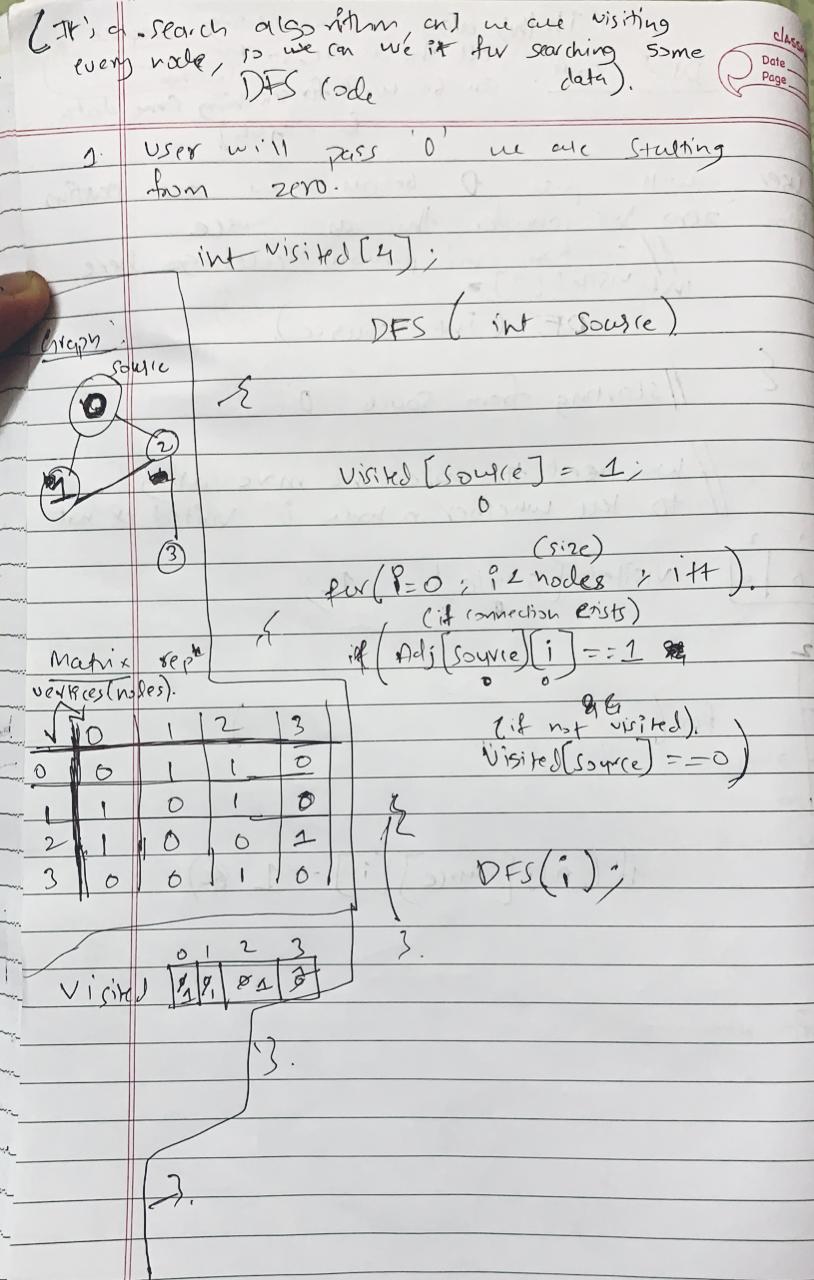 (It's a search algorithm, and we are visiting
every node, so we can use it for searching some
data).
DFS Code
Class
Date
Page
1. User will pass '0' we are starting
from zero.
int visited[4];
DFS (int source)
{
Graph:
source
0
2
1
3
visited[source] = 1;
0
(size)
for(i=0 ; i < nodes ; i++).
(if connection exists)
{
if (Adj[source][i]==1
0 0
&&
(if not visited).
visited[source] ==0)
{
DFS(i);
}.
Matrix repn
vertices(nodes).
0 1 2 3
0 0 1 1 0
1 1 0 1 0
2 1 0 0 1
3 0 0 1 0
0 1 2 3
Visited 0 1 0 1 0 1
}.
}.